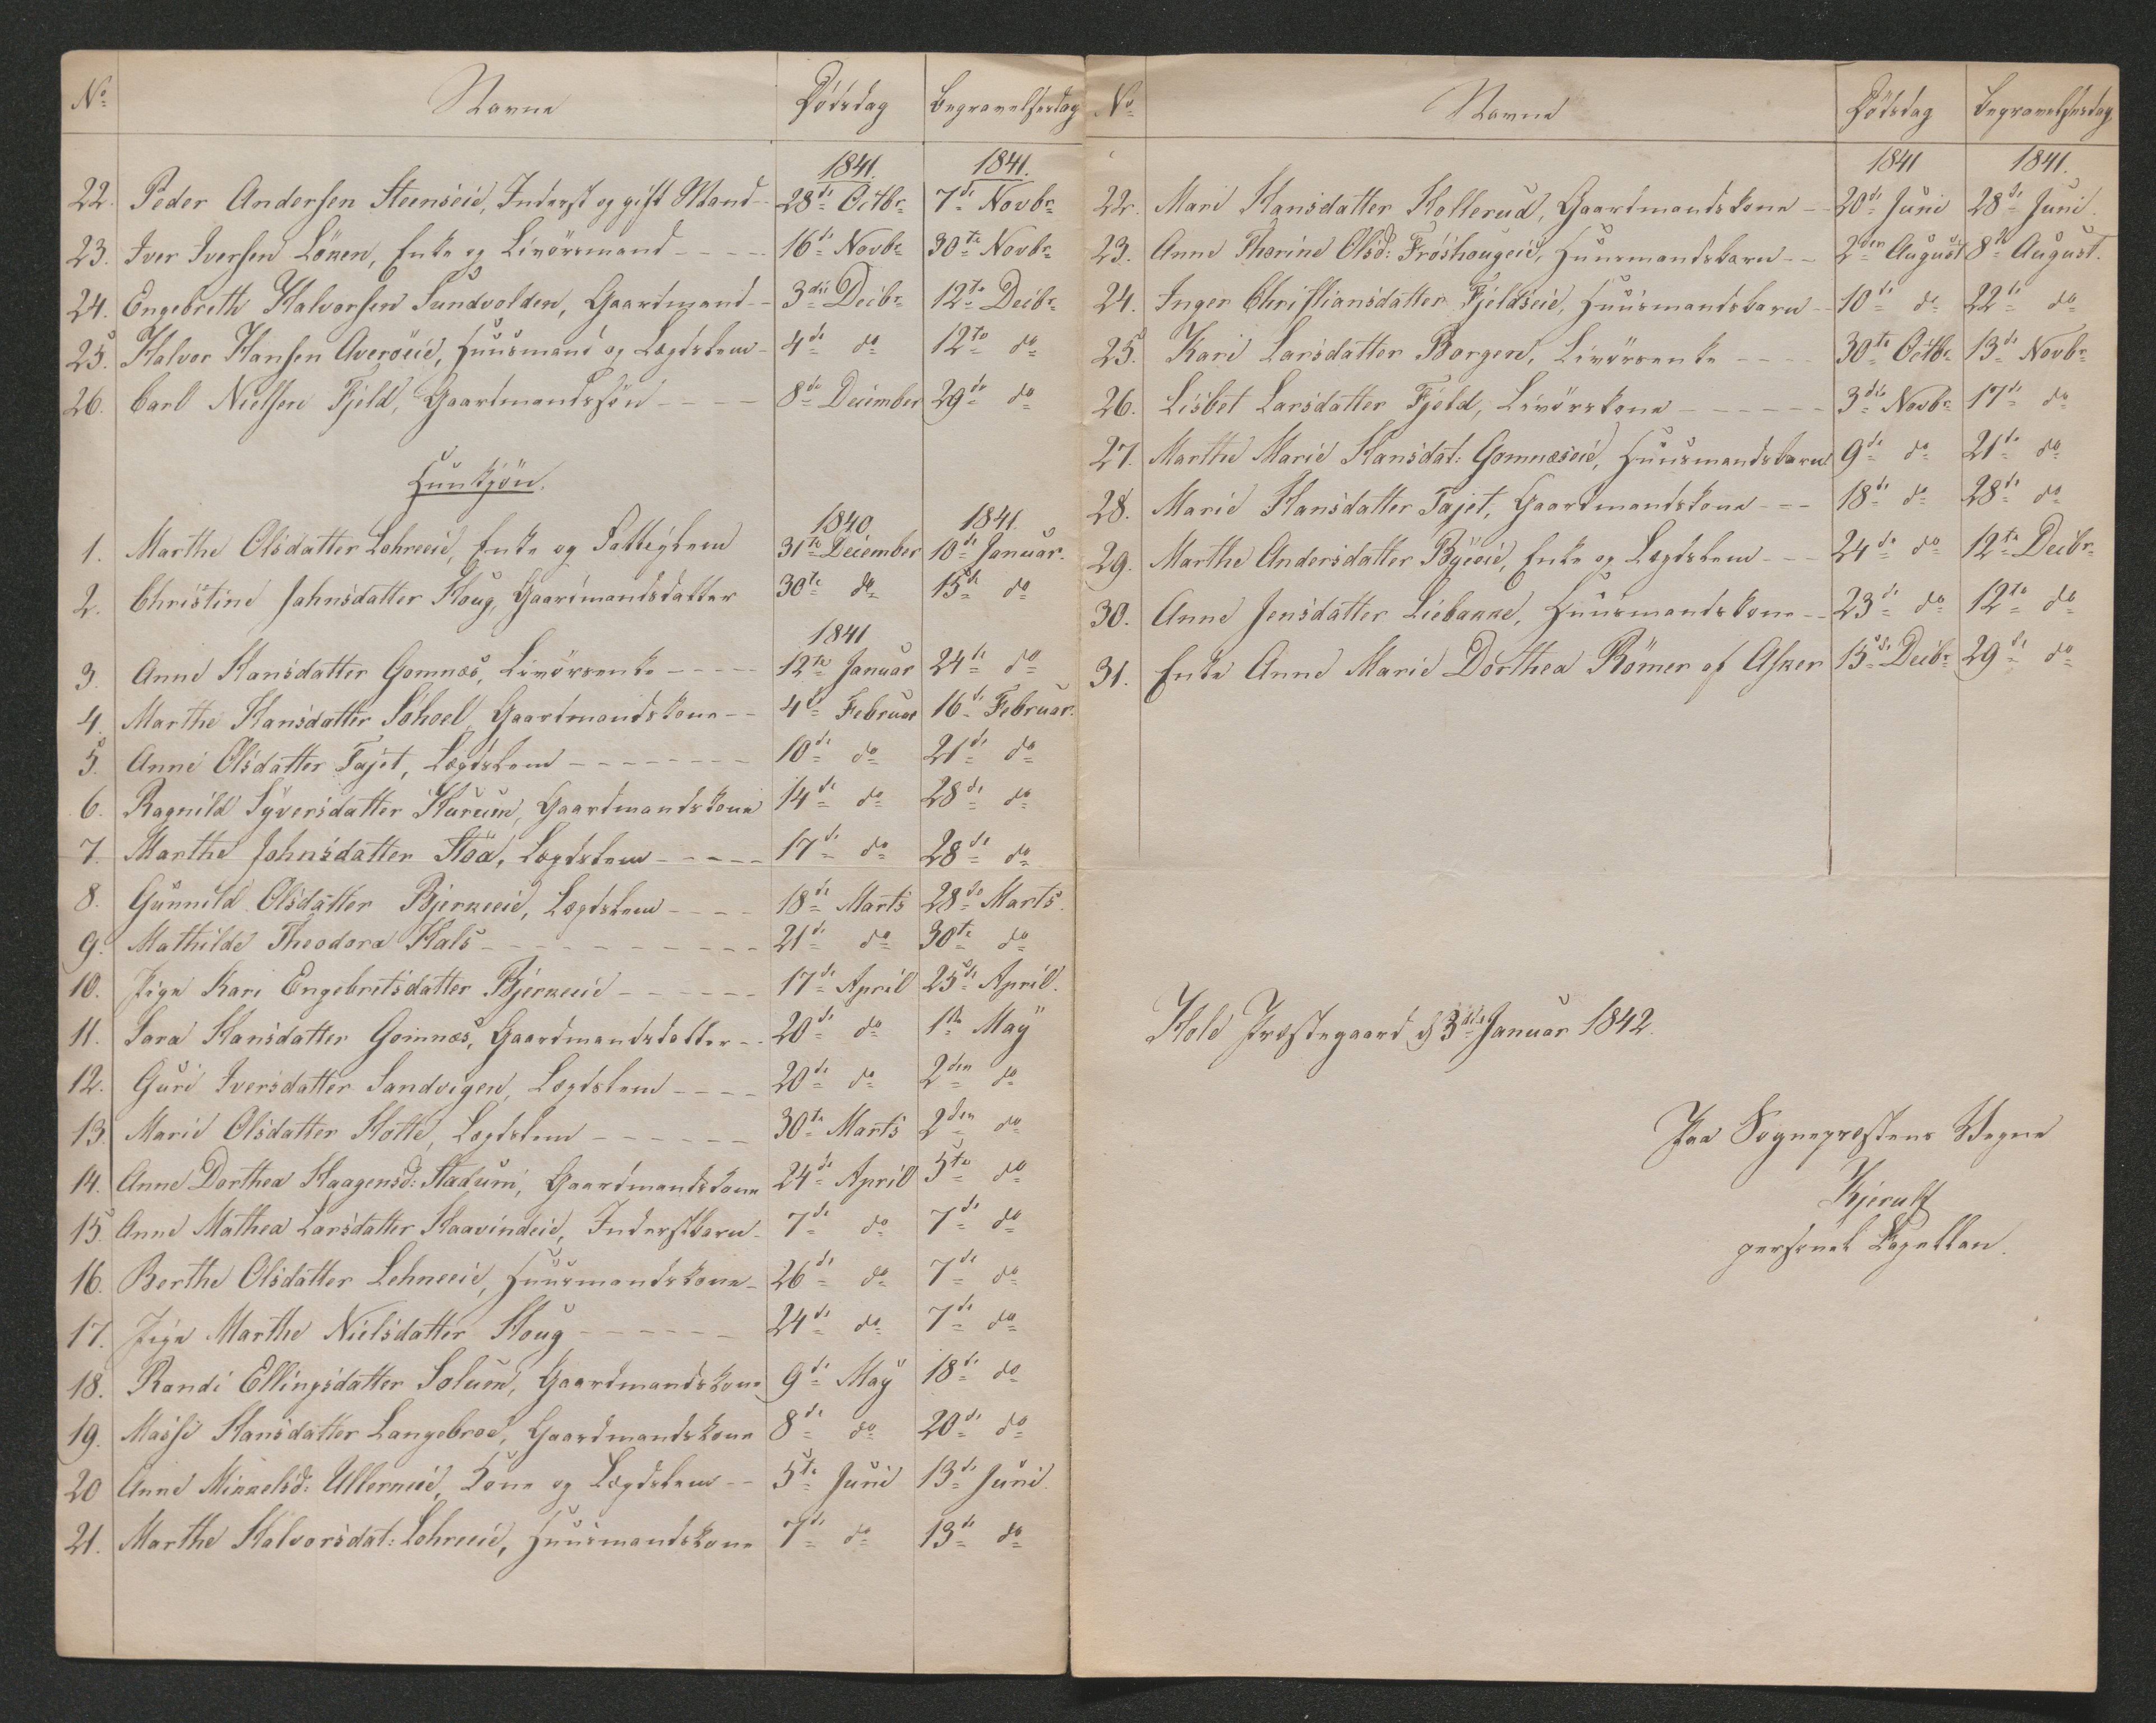 No Navne Dødsdag Begravelsesdag
1841. 1841.
22. Peder Andersen Steenseie, Inderst og gift Mand - 28de Octbr. 7de Novbr.
23. Iver Iversen Lönen, Enke og Livörsmand - - - - 16de Novbr. 30te Novbr.
24. Engebreth Halvorsen Sundvolden, Gaardmand - - 3die Decbr. 12te Decbr.
25. Halvor Hansen Averöeie, Huusmand og Lægdslem - 4de do 12te do
26. Carl Nielsen Fjeld, Gaardmandssön - - - - 8de December 29de do
Hunkjön.
1840. 1841.
1. Marthe Olsdatter Lehreeie, Enke og Fattiglem 31te December 10de Januar.
2. Christine Jahnsdatter Houg, Gaardmandsdatter 30te do 15de do
1841
3. Anne Hansdatter Gomnæs, Livörsenke - - - - - 12te Januar 24de do
4. Marthe Hansdatter Sohoel, Gaardmandskone - - 4de Februar 16de Februar.
5. Anne Olsdatter Tajet, Lægdslem - - - - - - - - 10de do 21de do
6. Ragnild Syversdatter Hurum, Gaardmandskone 14de do 28de do
7. Marthe Johnsdatter Stöa, Lægdslem - - - - - 17de do 28de do
8. Gunnild Olsdatter Bjerkeeie, Lægdslem - - - - 18de Marts 28de Marts.
9. Mathilde Theodora Hals - - - - - - - - - - - 21de do 30te do
10. Pige Kari Engebretsdatter Bjerkeeie - - - - - - 17de April 25de April.
11. Sara Hansdatter Gomnæs, Gaardmandsdatter - - 20de do 1ste May
12. Guri Iversdatter Sandvigen, Lægdslem - - - - 20de do 2den do
13. Marie Olsdatter Holte, Lægdslem - - - - - - 30te Marts 2den do
14. Anne Dorthea Haagensd: Stadum, Gaardmandskone 24de April 5te do
15. Anne Mathea Larsdatter Haavindeie, Inderstbarn - 7de do 7de do
16. Berthe Olsdatter Lehneeie, Huusmandskone - 26de do 7de do
17. Pige Marthe Nielsdatter Houg - - - - - - 24de do 7de do
18. Randi Ellingsdatter Solum, Gaardmandskone 9de May 18de do
19. Massi Hansdatter Langebroe, Gaardmandskone 8de do 20de do
20 Anne Mikkelsd: Ullerneeie, Kone og Lægdslem - - 5te Juni 13de Juni.
21. Marthe Halvorsdat: Lehreeie, Huusmandskone 7de do 13de do
No Navne Dödsdag Begravelsesdag
1841 1841.
22. Mari Hansdatter Kollerud, Gaardmandskone - - 20de Juni 28de Juni.
23. Anne Thorine Olsd: Fröshaugeie, Huusmandsbarn - - 2den August 8de August.
24. Inger Christiansdatter Fjeldseie, Huusmandsbarn - - 10de do 22de do
25. Kari Larsdatter Borgen, Livörsenke - - - 30te Octbr. 13de Novbr.
26. Lisbet Larsdatter Fjeld, Livörskone - - - - - - 3die Novbr. 17de do
27. Marthe Marie Hansdat: Gomnæseie, Huusmandsbarn 9de do 21de do
28. Marie Hansdatter Tajet, Gaardmandskone - - - 18de do 28de do
29. Marthe Andersdatter Byeeie, Enke og Lægdslem - - - 24de do 12te Decbr.
30. Anne Jensdatter Liebakke, Huusmandskone - - 23de do 12te do
31. Enke Anne Marie Dorthea Römer af Asker 15de Decbr. 29de do
Hole Præstegaard d. 3die Januar 1842.
Paa Sognepræstens Vegne
Kjerulf
personel Capellan.